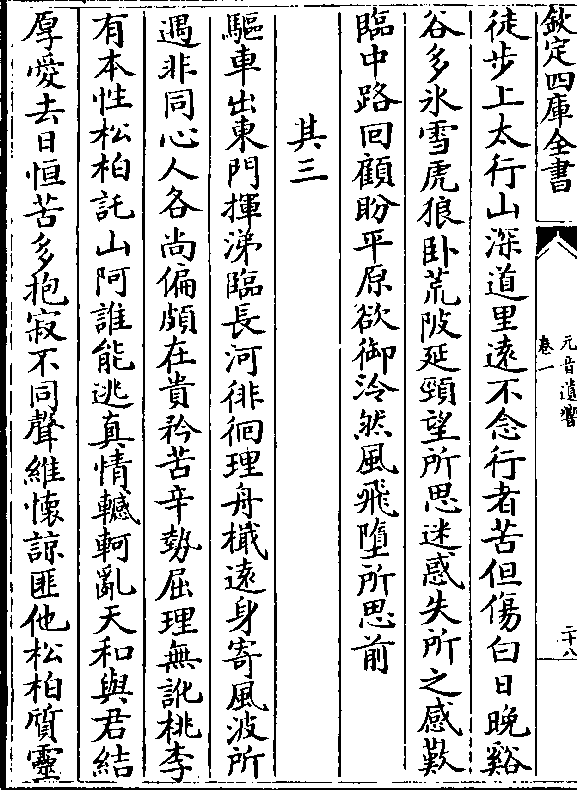 欽定四庫全書
元音遺響
卷一
二十八
徒步上太行山深道里遠不念行者苦但傷白日晚谿
谷多氷雪虎狼卧荒陂延頸望所思迷惑失所之感歎
臨中路回顧盼平原欲御泠然風飛墮所思前
其三
驅車出東門揮涕臨長河徘徊理舟檝遠身寄風波所
遇非同心人各尚偏頗在貴矜苦辛勢屈理無訛桃李
有本性松柏託山阿誰能逃真情轗軻亂天和與君結
厚愛去日恒苦多抱寂不同聲維懷諒匪他松柏質靈